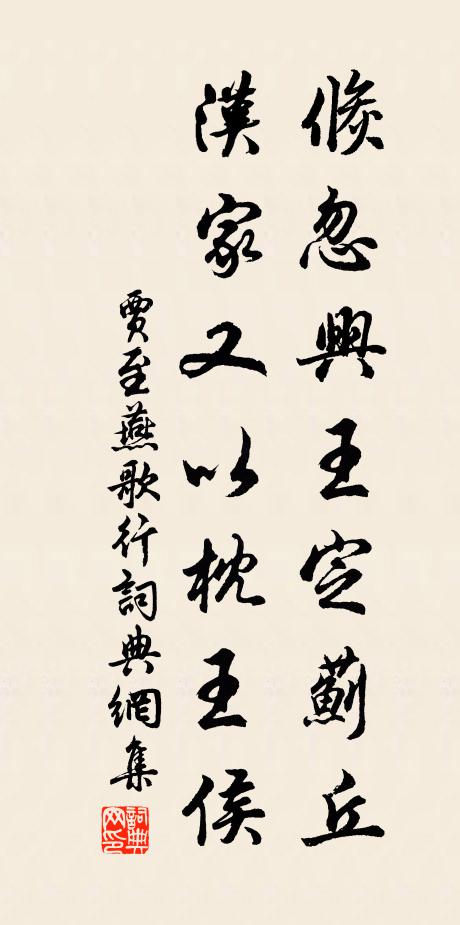 倐忽興王定薊丘
漢家又以枕王侯
賈至燕歌行詞典網集
詞典
网印